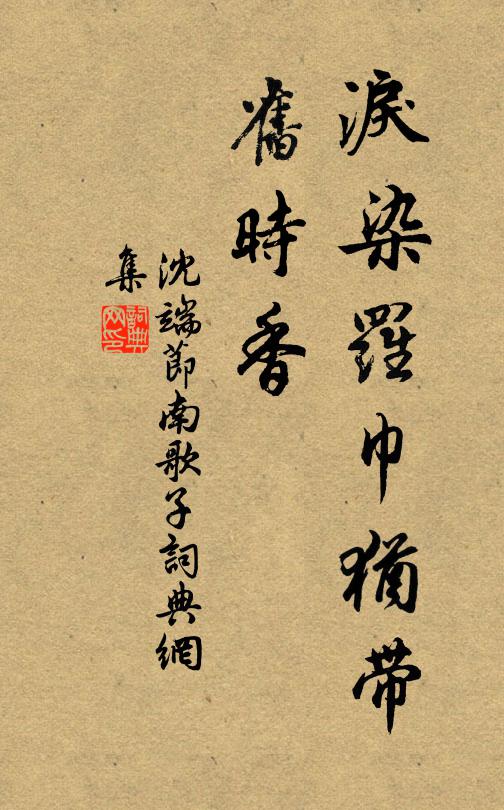 淚染羅巾猶带
舊時香
沈端節南歌子詞典網
集
詞典
网印